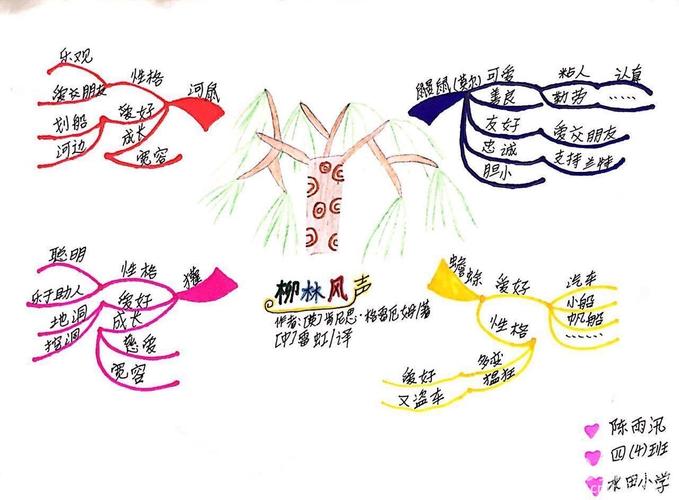 乐观
爱交朋友
性格
河鼠
划船
河边
爱好
成长
宽容
鼹鼠(莫尔)
可爱
粘人
认真
善良
勤劳
……
友好
爱交朋友
忠诚
支持兰特
胆小
聪明
乐于助人
性格
獾
地洞
挖洞
爱好
成长
慈爱
宽容
柳林风声
作者:[英]肯尼思·格雷厄姆/著
[中]雷虹/译
蟾蜍
爱好
汽车
小船
帆船
……
性格
多变
猛狂
爱好
又盗车
陈雨汛
四(4)班
水田小学